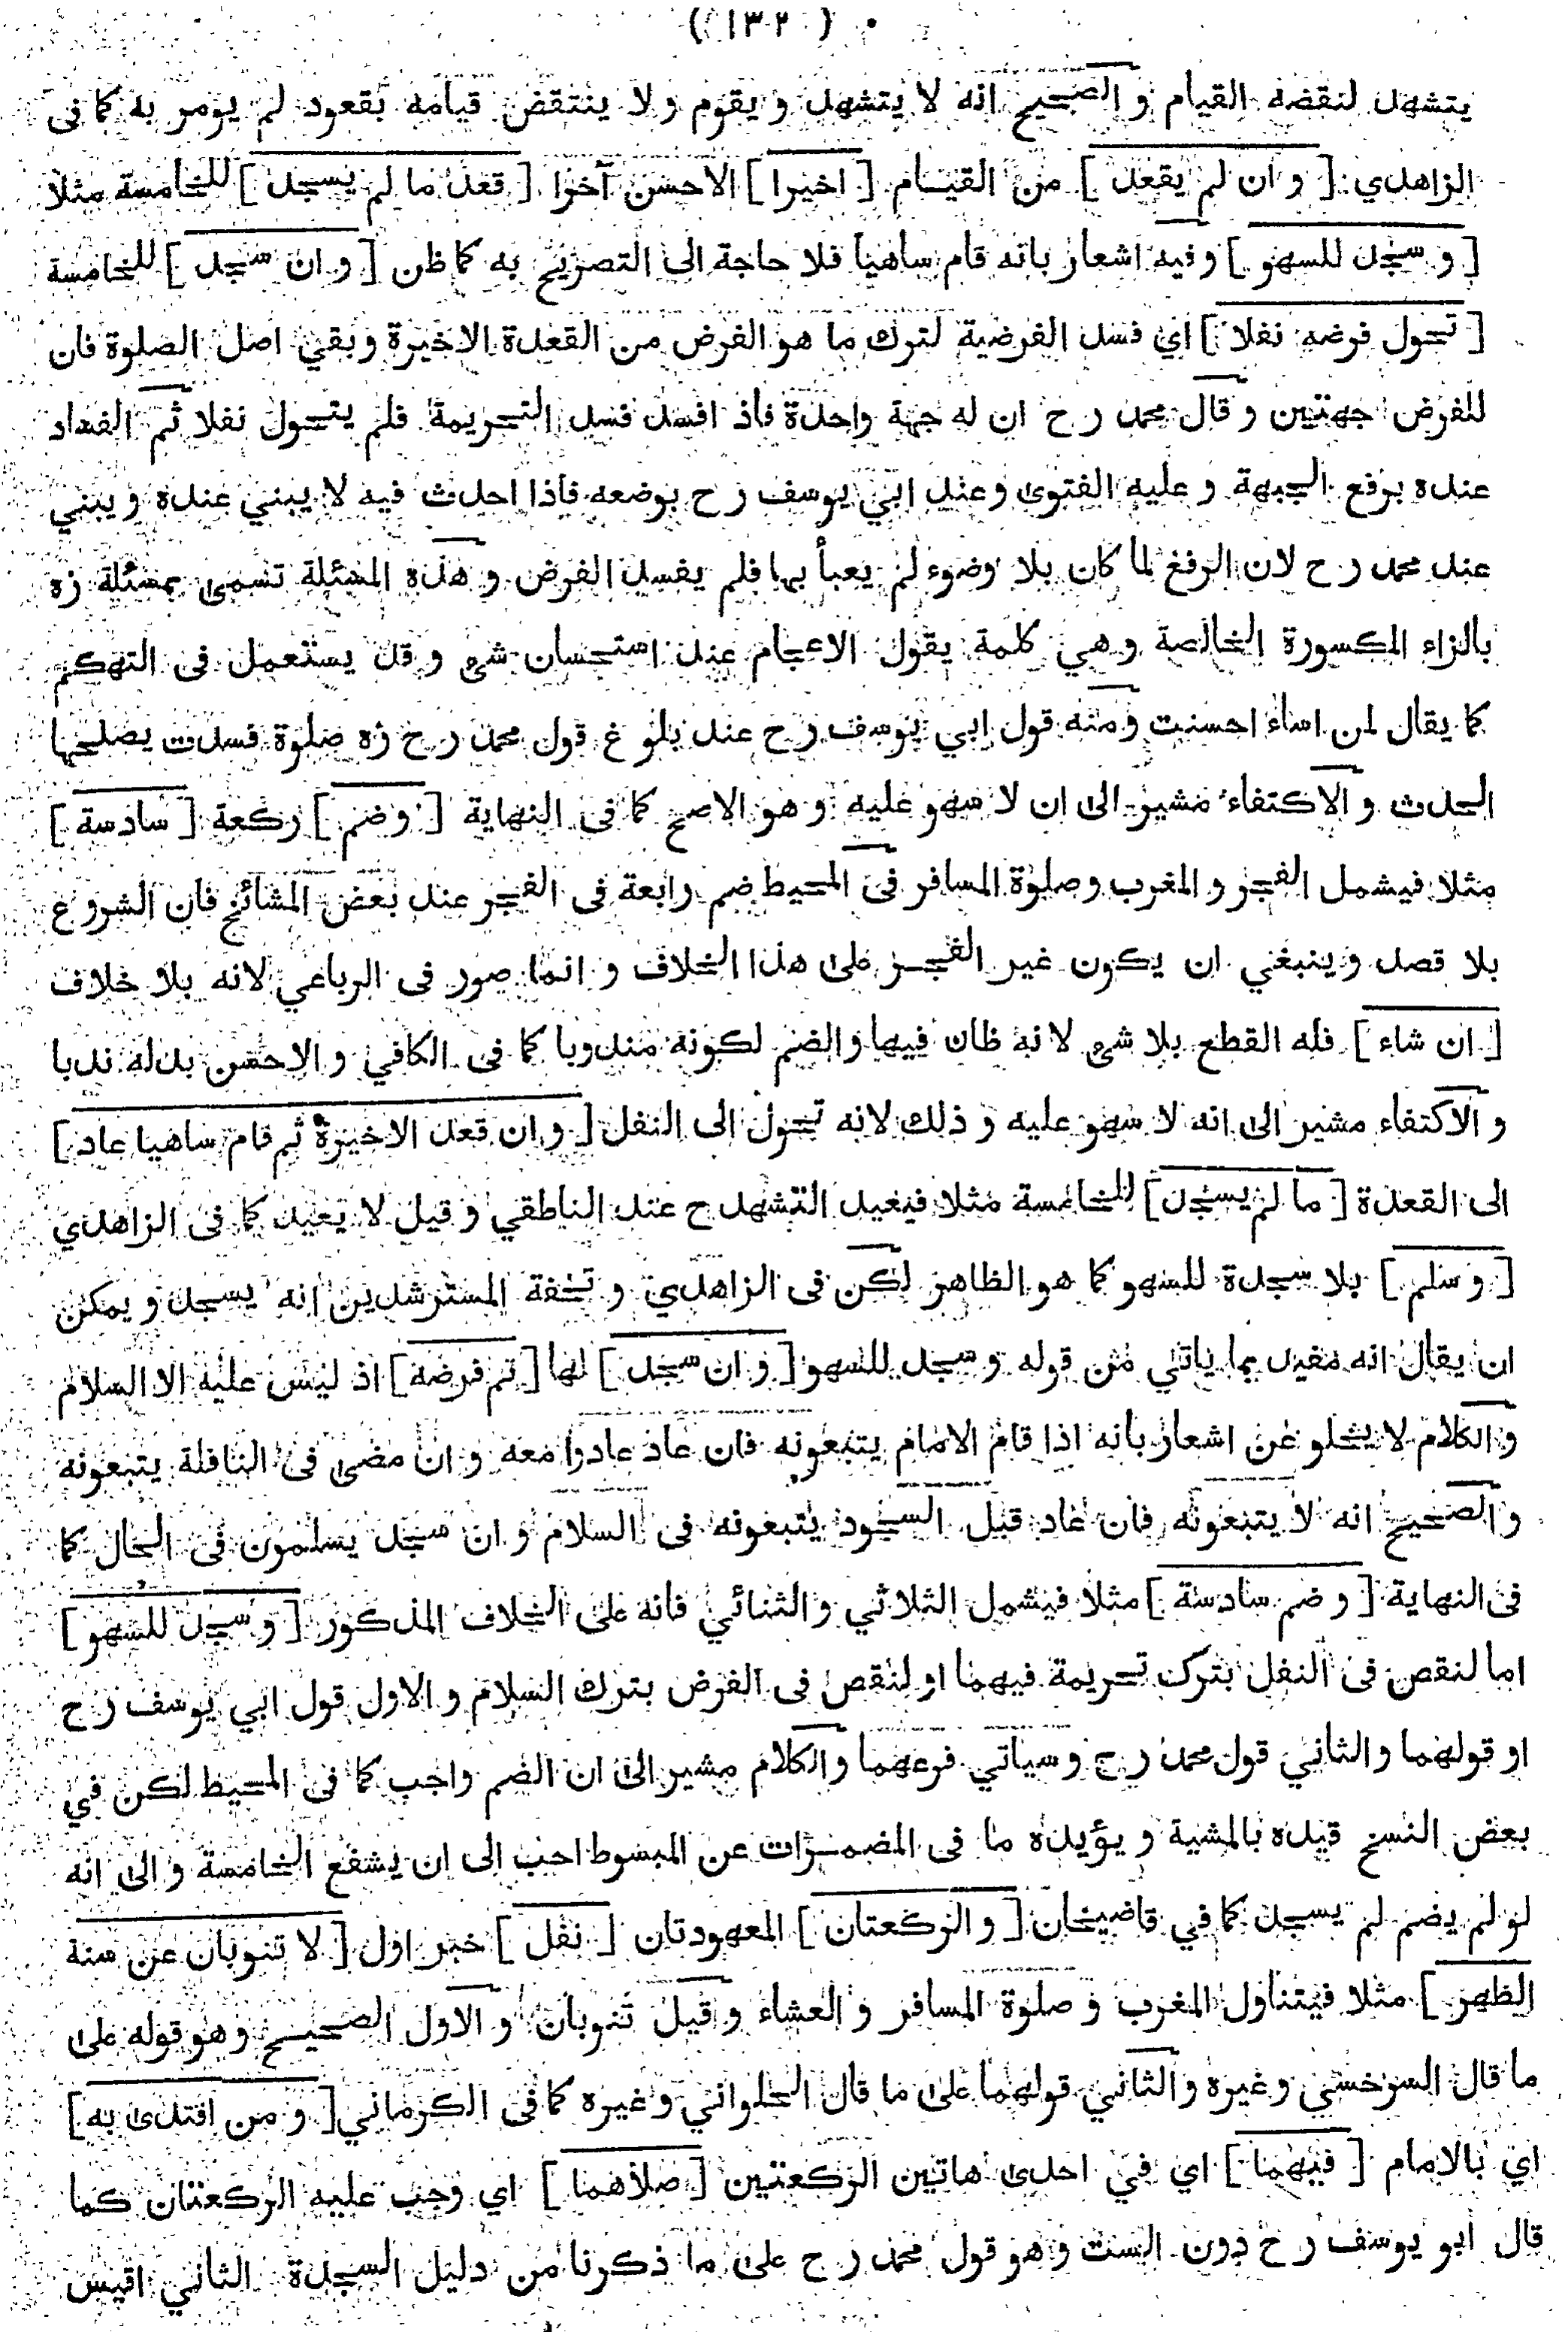 ( ١٣٢ )
يتشهد لنقضه القيام و الصحيح انه لا يتشهد و يقوم و لا ينتقض قيامه بقعود لم يومر به كما فى
الزاهدي [ و ان لم يقعد ] من القيام [ اخيرا ] الاحسن آخرا [ قعد ما لم يسجد ] للخامسة مثلا
[ و سجد للسهو ] و فيه اشعار بانه قام ساهيا فلا حاجة الى التصريح به كما ظن [ و ان سجد ] للخامسة
[ تحول فرضه نفلا ] اي فسد الفرضية لترك ما هو الفرض من القعدة الاخيرة و بقي اصل الصلوة فان
للفرض جهتين و قال محمد رح ان له جهة واحدة فاذ افسد فسد التحريمة فلم يتحول نفلا ثم الفساد
عنده برفع الجبهة و عليه الفتوى و عند ابي يوسف رح بوضعه فاذا احدث فيه لا يبني عنده و يبني
عند محمد رح لان الرفع لما كان بلا وضوء لم يعبأ بها فلم يفسد الفرض و هذه المسئلة تسمى بمسئلة زه
بالزاء المكسورة الخالصة و هي كلمة يقول الاعجام عند استحسان شئ و قد يستعمل فى التهكم
كما يقال لمن اساء احسنت و منه قول ابي يوسف رح عند بلوغ قول محمد رح زه صلوة فسدت يصلحها
الحدث و الاكتفاء مشير الى ان لا سهو عليه و هو الاصح كما فى النهاية [ وضم ] ركعة [ سادسة ]
مثلا فيشمل الفجر و المغرب و صلوة المسافر فى المحيط ضم رابعة فى الفجر عند بعض المشائخ فان الشروع
بلا قصد و ينبغي ان يكون غير الفجر على هذا الخلاف و انما صور فى الرباعي لانه بلا خلاف
[ ان شاء ] فله القطع بلا شئ لانه ظان فيها و الضم لكونه مندوبا كما فى الكافي و الاحسن بدله ندبا
و الاكتفاء مشير الى انه لا سهو عليه و ذلك لانه تحول الى النفل [ و ان قعد الاخيرة ثم قام ساهيا عاد ]
الى القعدة [ ما لم يسجد ] للخامسة مثلا فيعيد التشهد ح عند الناطقي و قيل لا يعيد كما فى الزاهدي
[ و سلم ] بلا سجدة للسهو كما هو الظاهر لكن فى الزاهدي و تحفة المسترشدين انه يسجد و يمكن
ان يقال انه مقيد بما ياتي من قوله و سجد للسهو [ و ان سجد ] لها [ تم فرضه ] اذ ليس عليه الا السلام
و الكلام لا يخلو عن اشعار بانه اذا قام الامام يتبعونه فان عاد عادوا معه و ان مضى فى النافلة يتبعونه
و الصحيح انه لا يتبعونه فان عاد قبل السجود يتبعونه فى السلام و ان سجد يسلمون فى الحال كما
فى النهاية [ و ضم سادسة ] مثلا فيشمل الثلاثي و الثنائي فانه على الخلاف المذكور [ و سجد للسهو ]
اما لنقص فى النفل بترك تحريمة فيهما او لنقص فى الفرض بترك السلام و الاول قول ابي يوسف رح
او قولهما و الثاني قول محمد رح و سياتي فرعهما و الكلام مشير الى ان الضم واجب كما فى المحيط لكن في
بعض النسخ قيده بالمشية و يؤيده ما فى المضمرات عن المبسوط احب الى ان يشفع الخامسة و الى انه
لو لم يضم لم يسجد كما في قاضيخان [ و الركعتان ] المعهودتان [ نفل ] خبر اول [ لا تنوبان عن سنة
الظهر ] مثلا فيتناول المغرب و صلوة المسافر و العشاء و قيل تنوبان و الاول الصحيح و هو قوله على
ما قال السرخسي و غيره و الثاني قولهما على ما قال الحلواني و غيره كما فى الكرماني [ و من اقتدى به ]
اي بالامام [ فيهما ] اي في احدى هاتين الركعتين [ صلاهما ] اي وجب عليه الركعتان كما
قال ابو يوسف رح دون الست و هو قول محمد رح على ما ذكرنا من دليل السجدة الثاني اقيس